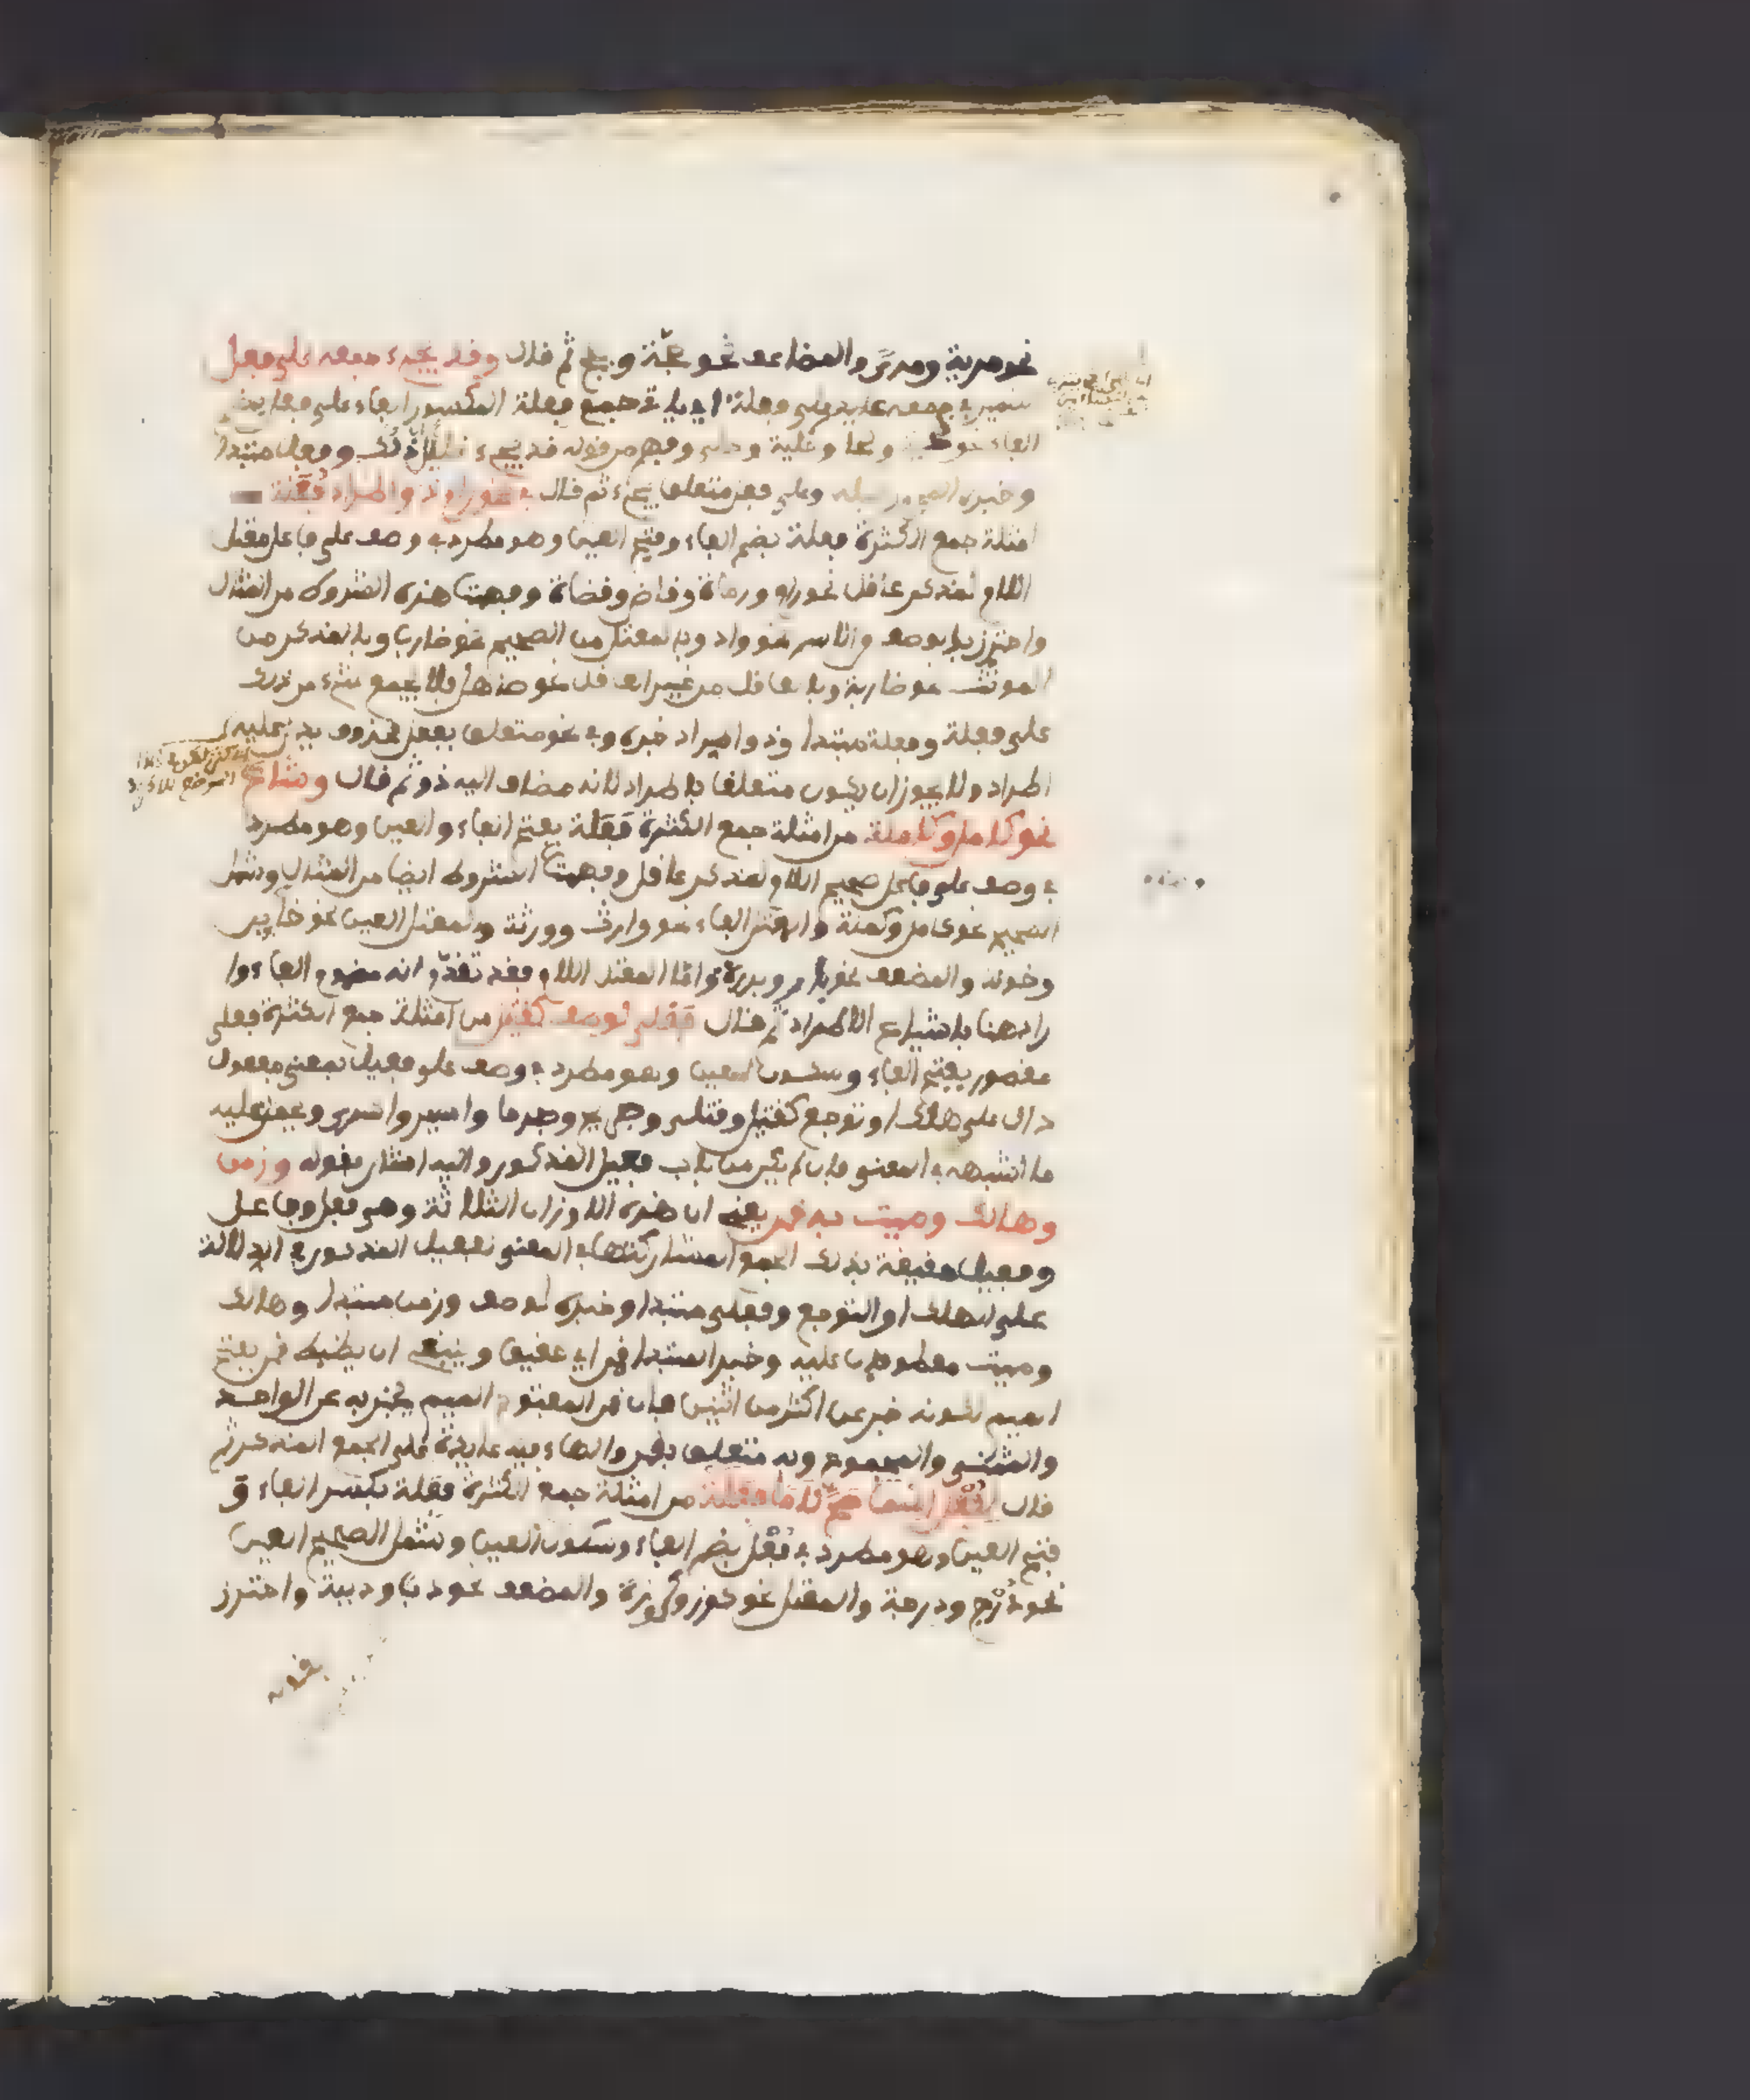 نحو مرية ومرى والمضاعف نحو حجة وحجج ثم قال وقد يجيء جمعه على فعل
ضمير جمعه عايد على فعلة اي ياتي جمع فعلة المكسور الفاء على فعل بضم
الفاء نحو ولحا وحلية وحلى وفهم من قوله قد يجيء ذلك وفعل مبتدا
وخبره وعلى فعل متعلق بيجيء ثم قال في نحو رام ذو اطراد فعلة
امثلة جمع الكثرة فعلة بضم الفاء وفتح العين وهو مطرد في وصف على فاعل معتل
اللام لمذكر عاقل نحو رام ورماة وقاض وقضاة وفهمت هذه الشروط من المثال
واحترز بالوصف من الاسم نحو واد وبالمعتل من الصحيح نحو ضارب وبالمذكر من
المونث نحو ضاربة وبالعاقل من غير العاقل نحو صاهل فلا يجمع شيء من ذلك
على فعلة وفعلة مبتدا وذو اطراد خبره وفي نحو متعلق بفعل محذوف يدل عليه
اطراد ولا يجوز ان يكون متعلقا باطراد لانه مضاف اليه ذو ثم قال وشاع
نحو كامل وكملة من امثلة جمع الكثرة فعلة بفتح الفاء والعين وهو مطرد
في وصف على فاعل صحيح اللام لمذكر عاقل وفهمت الشروط ايضا من المثال وشمل
الصحيح نحو كامل وكملة والمعتل الفاء نحو وارث وورثة والمعتل العين نحو خاين
وخونة والمضعف نحو بار وبررة واما المعتل اللام فقد تقدم انه مضموم الفاء وا
راد هنا بالشياع الاطراد ثم قال فعلى لوصف كقتيل من امثلة جمع الكثرة فعلى
مقصور بفتح الفاء وسكون العين وهو مطرد في وصف على فعيل بمعنى مفعول
دال على هلك او توجع كقتيل وقتلى وجريح وجرحا واسير واسرى ويحمل عليه
ما اشبهه في المعنى وان لم يكن من باب فعيل المذكور واليه اشار بقوله وزمن
وهالك وميت به قمن يعني ان هذه الاوزان الثلاثة وهي فعل وفاعل
وفيعل حقيقة بذلك الجمع لمشاركتها في المعنى لفعيل المذكور في الدلالة
على الهلك او التوجع وفعلى مبتدا وخبره لوصف وزمن مبتدا وهالك
وميت معطوفان عليه وخبر المبتدا قمن اي حقيق وينبغي ان يضبط قمن بفتح
الميم لكونه خبر عن اكثر من اثنين فان قمن المفتوح الميم يخبر به عن الواحد
والمثنى والمجموع وبه متعلق بقمن والهاء فيه عايدة على الجمع المذكر ثم
قال لفعل اسما صح لاما فعلة من امثلة جمع الكثرة فعلة بكسر الفاء و
فتح العين وهو مطرد في فعل بضم الفاء وسكون العين وشمل الصحيح العين
نحو درج ودرجة والمعتل نحو كوز وكوزة والمضعف نحو دب ودببة واحترز
بقوله